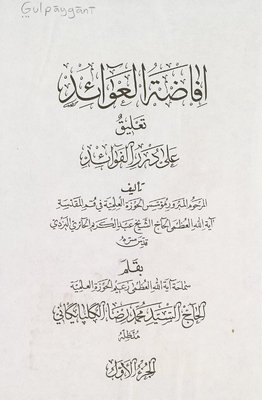 Gulpāygānī
إفاضة العوائد
تعليق
على درر الفوائد
تأليف
المرحوم المبرور مؤسس الحوزة العلمية في قم المقدسة
آية الله العظمى الحاج الشيخ عبد الكريم الحائري اليزدي
قدس سره
بقلم
سماحة آية الله العظمى زعيم الحوزة العلمية
الحاج السيد محمد رضا الگلپايگاني
مد ظله
الجزء الأول